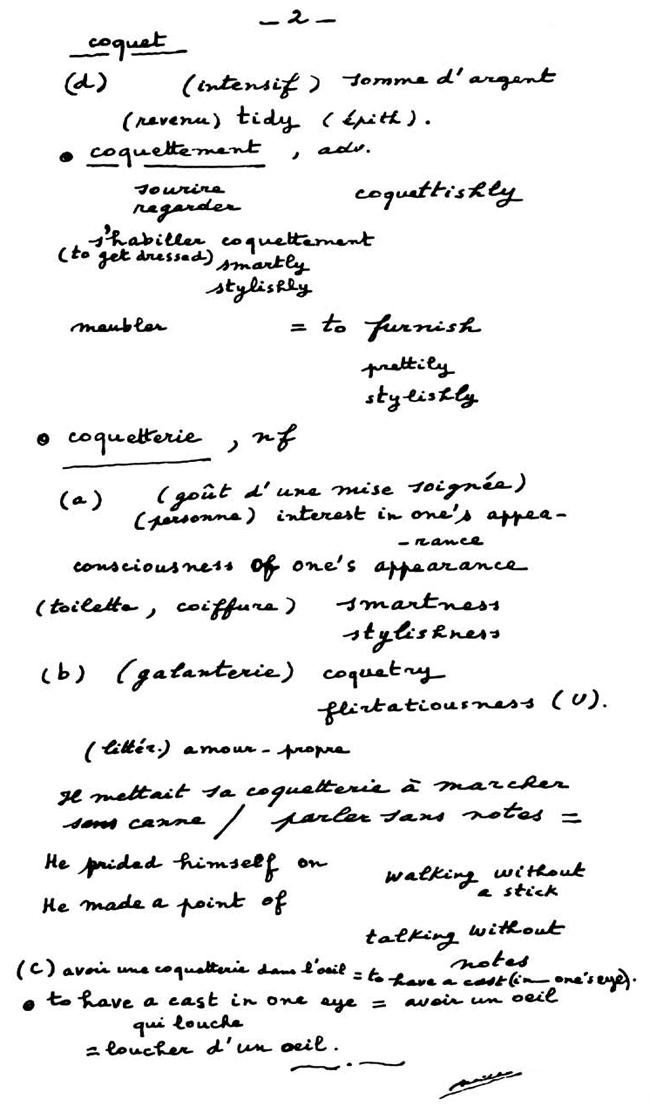 - 2 -
coquet
(d) (intensif) somme d'argent
(revenu) tidy (épith).
• coquettement, adv.
sourire
regarder coquettishly
s'habiller coquettement
(to get dressed) smartly
stylishly
meubler = to furnish
prettily
stylishly
• coquetterie, nf
(a) (goût d'une mise soignée)
(personne) interest in one's appea-
-rance
consciousness of one's appearance
(toilette, coiffure) smartness
stylishness
(b) (galanterie) coquetry
flirtatiousness (U).
(littér.) amour-propre
Il mettait sa coquetterie à marcher
sans canne / parler sans notes =
He prided himself on
walking without
a stick
He made a point of
talking without
notes
(c) avoir une coquetterie dans l'oeil = to have a cast (in one's eye).
• to have a cast in one eye = avoir un oeil
qui louche
= loucher d'un oeil.